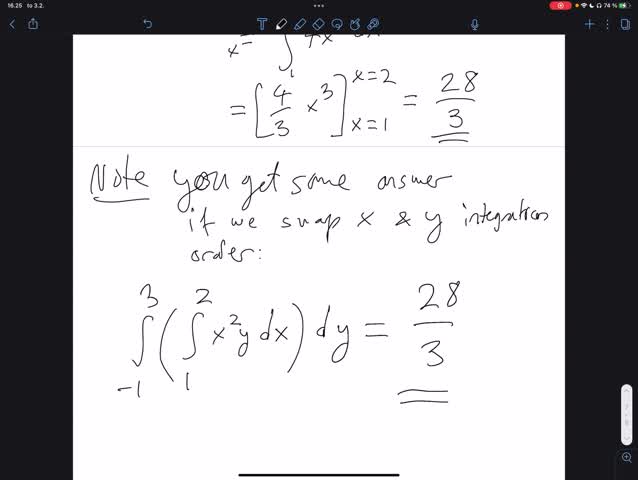 16.25 to 3.2.
74 %
= [4/3 x³]ˣ⁼²ₓ₌₁ = 28/3
Note you get same answer
if we swap x & y integration
order:
∫₋₁³ (∫₁² x²y dx) dy = 28/3